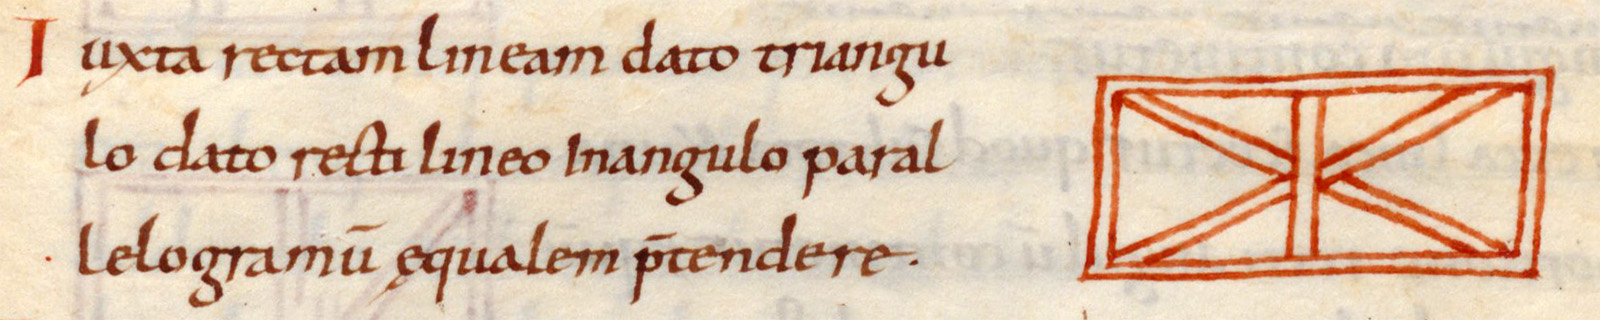 Iuxta rectam lineam dato triangu
lo dato recti lineo Inangulo paral
lelogramū ęqualem p̄tendere.